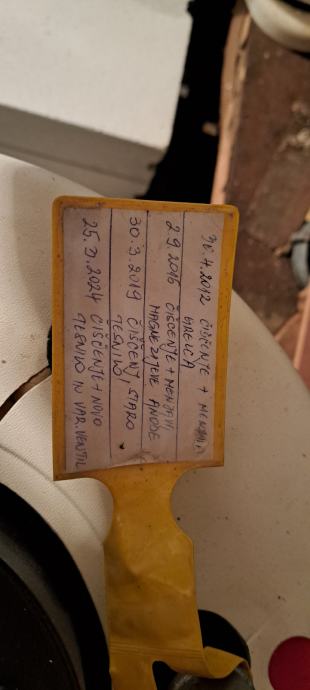 4.2012 ČIŠČENJE +
GRELCA
2.9.2016 ČIŠČENJE + MENJAVA
MAGNEZIJEVE ANODE
30.3.2019 ČIŠČENJE STARO
TESNILO!
25. 2024 ČIŠČENJE + NOVO
TESNILO IN VAR.VENTIL